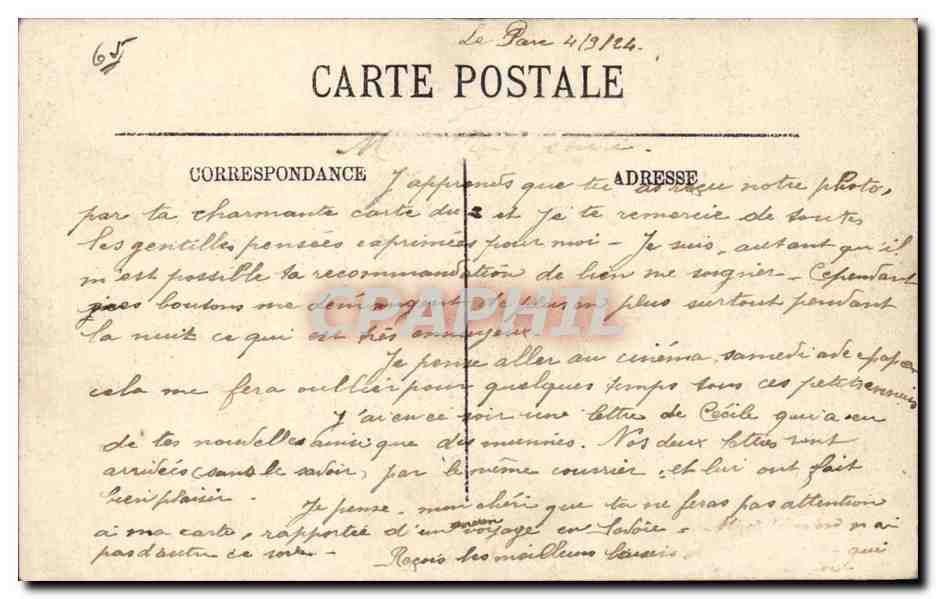 65
Le Parc 4/9/24.
CARTE POSTALE
CORRESPONDANCE
ADRESSE
J'apprends que tu as reçu notre photo,
par ta charmante carte du 2 et je te remercie de toutes
les gentilles pensées exprimées pour moi - Je suis, autant qu'il
m'est possible ta recommandation de bien me soigner - Cependant
ces boutons me démangent de plus en plus surtout pendant
la nuit ce qui est très ennuyeux.
CPAPHIL
Je pense aller au cinéma samedi avec papa
cela me fera oublier pour quelques temps tous ces petits ennuis
J'ai eu ce soir une lettre de Cécile qui a eu
de tes nouvelles ainsi que des miennes. Nos deux lettres sont
arrivées (sans le savoir) par le même courrier et lui ont fait
bien plaisir.
Je pense, mon chéri que tu ne feras pas attention
à ma carte, rapportée d'un ancien voyage en Savoie - n'ai
pas d'autre ce soir - Reçois les meilleurs baisers
qui